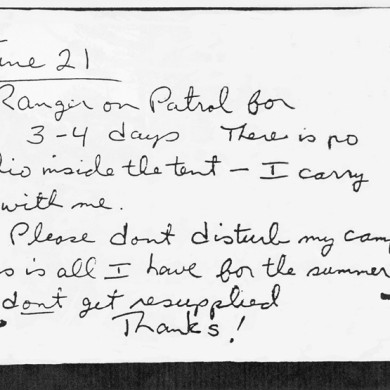 June 21
Ranger on Patrol for
3-4 days There is no
dio inside the tent - I carry
with me.
Please dont disturb my camp
s is all I have for the summer
dont get resupplied
Thanks!